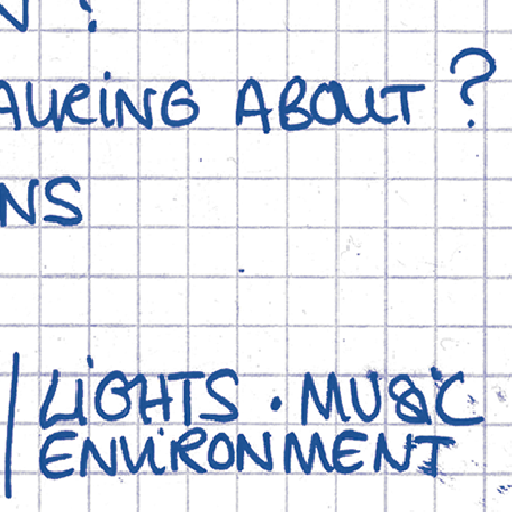 ABOUT ?
NS
LiGHTS · MUSiC
ENViRONMENT